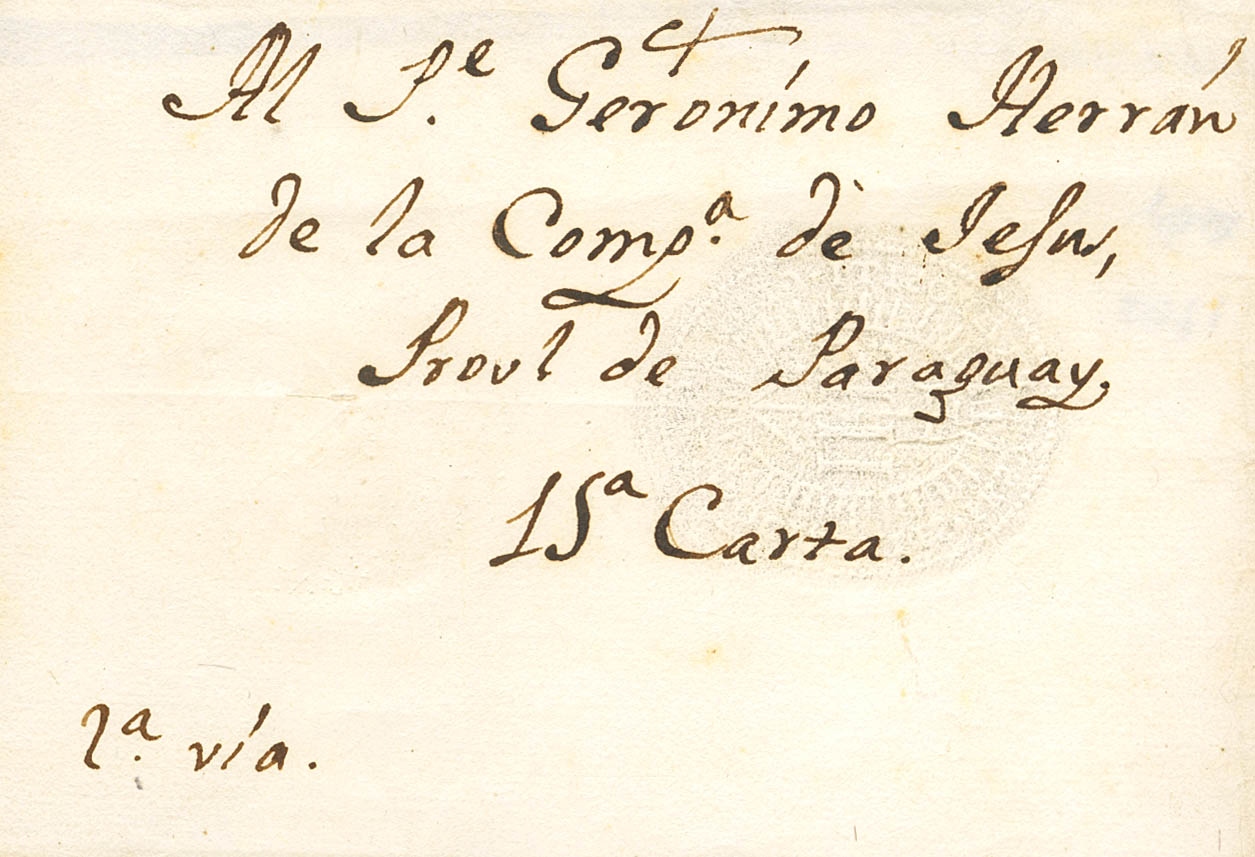 Al P.e Gerónimo Herrán
de la Comp.a de Jesus,
Provl de Paraguay.
15a Carta.
2.a vía.